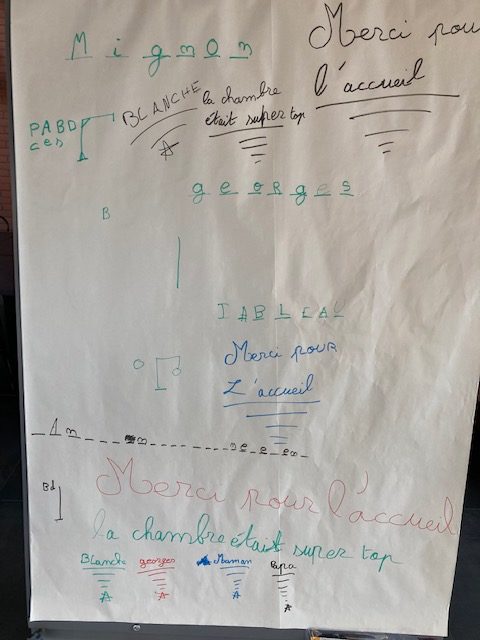 MignOn
Merci pou
l'accueil
PABD
ces
BLANCHE
la chambre
était super top
geORgeS
B
TABLEAU
Merci pour
L'accueil
Bd
Merci pour l'accueil
la chambre était super top
Blanche georges Maman Papa